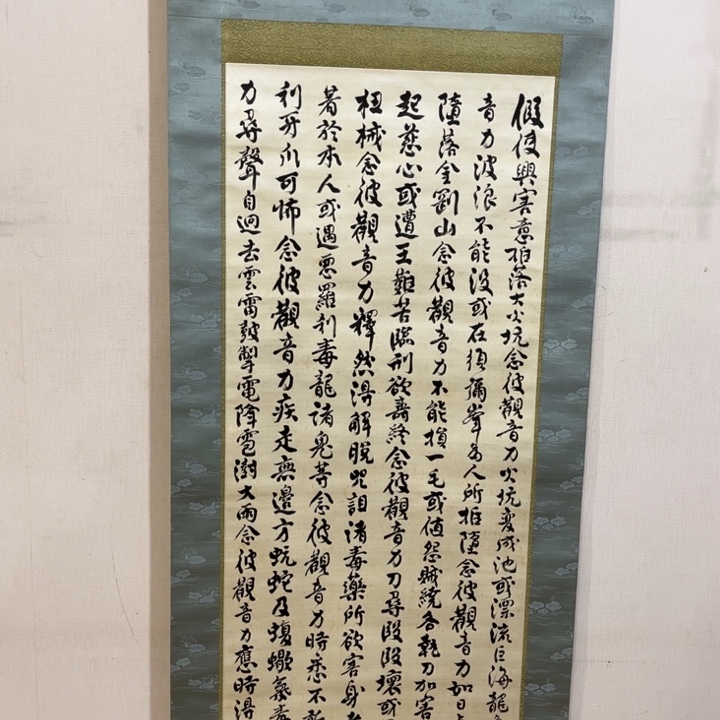 假使興害意推落大火坑念彼觀音力火坑變成池或漂流巨海龍
音力波浪不能沒或在須彌峯為人所推墮念彼觀音力如日
墮落金剛山念彼觀音力不能損一毛或值怨賊繞各執刀加害
起慈心或遭王難苦臨刑欲壽終念彼觀音力刀尋段段壞或
杻械念彼觀音力釋然得解脫咒詛諸毒藥所欲害身
著於本人或遇惡羅刹毒龍諸鬼等念彼觀音力時悉不敢
利牙爪可怖念彼觀音力疾走無邊方蚖蛇及蝮蠍氣毒
力尋聲自迴去雲雷鼓掣電降雹澍大雨念彼觀音力應時得